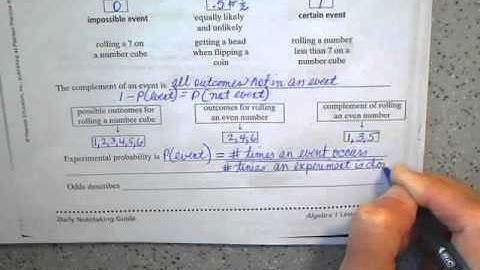 0 .5 or ½ 1
impossible event equally likely and unlikely certain event
rolling a 7 on a number cube getting a head when flipping a coin rolling a number less than 7 on a number cube
The complement of an event is all outcomes not in an event
1 - P(event) = P(not event)
possible outcomes for rolling a number cube outcomes for rolling an even number complement of rolling an even number
1,2,3,4,5,6 2,4,6 1,3,5
Experimental probability is P(event) = # times an event occurs
# times an experiment is do
Odds describes
Daily Notetaking Guide Algebra 1